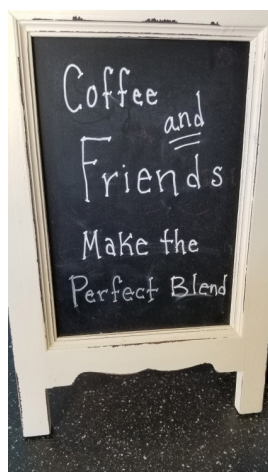 Coffee
and
Friends
Make the
Perfect Blend